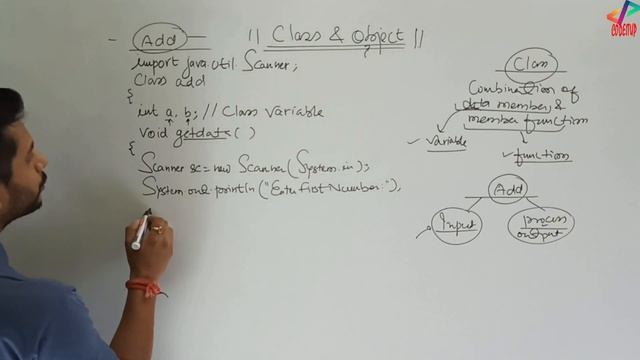 - Add || Class & Object ||
import java.util.Scanner;
Class add
{
int a, b; // Class Variable
Void getdata()
{
Scanner sc=new Scanner(System.in);
System.out.println("Enter first Number:");
Class
Combination of
data members &
member function
✓ variable
✓ function
Add
Input
process
output
CODEITUP